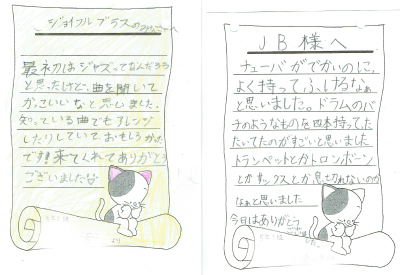 ジョイフルブラスのみなさーへ
最初はジャズってなんだろう
と思ったけど、曲を聞いて
かっこいいなと思いました。
知っている曲でもアレンジ
したりしていて、おもしろかった
です!来てくれてありがとう
ございました
より
JB様へ
チューバがでかいのに、
よく持ってふけるなぁ
と思いました。ドラムのバ
チのようなものを四本持ってた
たいてたのがすごいと思いました
トランペットとかトロンボーン
とかサックスとか息切れないのか
なぁと思いました
今日はありがとう